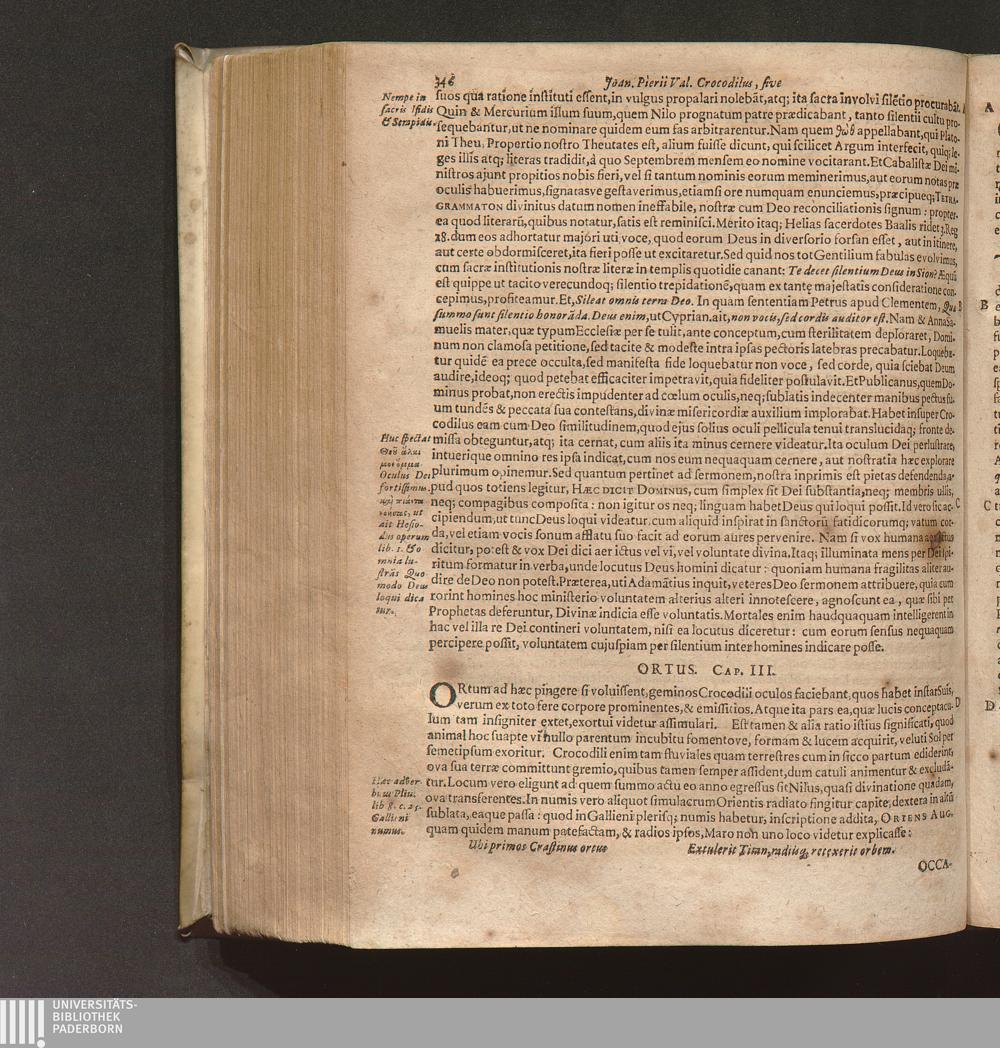 346 Joan. Pierii Val. Crocodilus, sive
Nempe in
sacris Isidis
& Serapidis.
suos qua ratione instituti essent, in vulgus propalari nolebāt, atq; ita sacra involvi silētio procurabāt.
Quin & Mercurium illum suum, quem Nilo prognatum patre prædicabant, tanto silentii cultu pro-
sequebantur, ut ne nominare quidem eum fas arbitrarentur. Nam quem appellabant, qui Plato-
ni Theu, Propertio nostro Theutates est, alium fuisse dicunt, qui scilicet Argum interfecit, quiq; le-
ges illis atq; literas tradidit, à quo Septembrem mensem eo nomine vocitarant. Et Cabalistæ Dei mi-
nistros ajunt propitios nobis fieri, vel si tantum nominis eorum meminerimus, aut eorum notas præ
oculis habuerimus, signatasve gestaverimus, etiamsi ore numquam enunciemus, præcipueq; TETRA-
GRAMMATON divinitus datum nomen ineffabile, nostræ cum Deo reconciliationis signum: propter-
ea quod literarū, quibus notatur, satis est reminisci. Merito itaq; Helias sacerdotes Baalis ridet 3. Reg
18. dum eos adhortatur majori uti voce, quod eorum Deus in diversorio forsan esset, aut in itinere,
aut certe obdormisceret, ita fieri posse ut excitaretur. Sed quid nos tot Gentilium fabulas evolvimus,
cum sacræ institutionis nostræ literæ in templis quotidie canant: Te decet silentium Deus in Sion? Æquū
est quippe ut tacito verecundoq; silentio trepidationē, quam ex tantę majestatis consideratione con-
cepimus, profiteamur. Et, Sileat omnis terra Deo. In quam sententiam Petrus apud Clementem, Quæ B
summo sunt silentio honorāda. Deus enim, ut Cyprian. ait, non vocis, sed cordis auditor est. Nam & Anna Sa-
muelis mater, quæ typum Ecclesiæ per se tulit, ante conceptum, cum sterilitatem deploraret, Domi-
num non clamosa petitione, sed tacite & modeste intra ipsas pectoris latebras precabatur. Loqueba-
tur quidē ea prece occulta, sed manifesta fide loquebatur non voce, sed corde, quia sciebat Deum
audire, ideoq; quod petebat efficaciter impetravit, quia fideliter postulavit. Et Publicanus, quem Do-
minus probat, non erectis impudenter ad cœlum oculis, neq; sublatis indecenter manibus pectus su-
um tundēs & peccata sua contestans, divinæ misericordiæ auxilium implorabat. Habet insuper Cro-
codilus eam cum Deo similitudinem, quod ejus solius oculi pellicula tenui translucidaq; fronte de-
missa obteguntur, atq; ita cernat, cum aliis ita minus cernere videatur. Ita oculum Dei perlustrare,
intuerique omnino res ipsa indicat, cum nos eum nequaquam cernere, aut nostratia hæc explorare
plurimum opinemur. Sed quantum pertinet ad sermonem, nostra inprimis est pietas defendenda, a-
pud quos totiens legitur, HÆC DICIT DOMINUS, cum simplex sit Dei substantia, neq; membris ullis,
neq; compagibus composita: non igitur os neq; linguam habet Deus qui loqui possit. Id vero sic ac- C
cipiendum, ut tunc Deus loqui videatur, cum aliquid inspirat in sanctorū fatidicorumq; vatum cor-
da, vel etiam vocis sonum afflatu suo facit ad eorum aures pervenire. Nam si vox humana
dicitur, potest & vox Dei dici aer ictus vel vi, vel voluntate divina. Itaq; illuminata mens per Dei spi-
ritum formatur in verba, unde locutus Deus homini dicatur: quoniam humana fragilitas aliter au-
dire de Deo non potest. Præterea, uti Adamātius inquit, veteres Deo sermonem attribuere, quia cum
norint homines hoc ministerio voluntatem alterius alteri innotescere, agnoscunt ea, quæ sibi per
Prophetas deferuntur, Divinæ indicia esse voluntatis. Mortales enim haudquaquam intelligerent in
hac vel illa re Dei contineri voluntatem, nisi ea locutus diceretur: cum eorum sensus nequaquam
percipere possit, voluntatem cujuspiam per silentium inter homines indicare posse.
Huc spectat
Oculus Dei
fortissimus.
ut
ait Hesio-
dus operum
lib. 1. & o
mnia lu-
strās Quo
modo Deus
loqui dica
tur.
ORTUS. CAP. III.
ORtum ad hæc pingere si voluissent, geminos Crocodili oculos faciebant, quos habet instar Suis,
verum ex toto fere corpore prominentes, & emissitios. Atque ita pars ea, quæ lucis conceptacu- D
lum tam insigniter extet, exortui videtur assimulari. Est tamen & alia ratio istius significati, quod
animal hoc suapte vi nullo parentum incubitu fomentove, formam & lucem acquirit, veluti Sol per
semetipsum exoritur. Crocodili enim tam fluviales quam terrestres cum in sicco partum ediderint,
ova sua terræ committunt gremio, quibus tamen semper assident, dum catuli animentur & excludā-
tur. Locum vero eligunt ad quem summo actu eo anno egressus sit Nilus, quasi divinatione quadam,
ova transferentes. In numis vero aliquot simulacrum Orientis radiato fingitur capite, dextera in altū
sublata, eaque passa: quod in Gallieni plerisq; numis habetur, inscriptione addita, ORIENS AUG.
quam quidem manum patefactam, & radios ipsos, Maro non uno loco videtur explicasse:
Hæc adver-
bius Plin.
lib 8. c. 25.
Gallieni
numus.
Ubi primos Crastinus ortus Extulerit Titan, radiisq; retexerit orbem.
OCCA-
A
B
C
D
UNIVERSITÄTS-
BIBLIOTHEK
PADERBORN